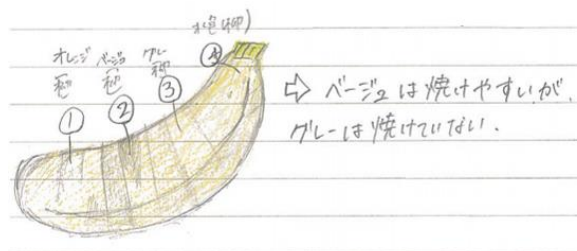 水色
オレンジ
ベージュ
グレー
④
①
②
③
⇨ ベージュは焼けやすいが、
グレーは焼けていない.